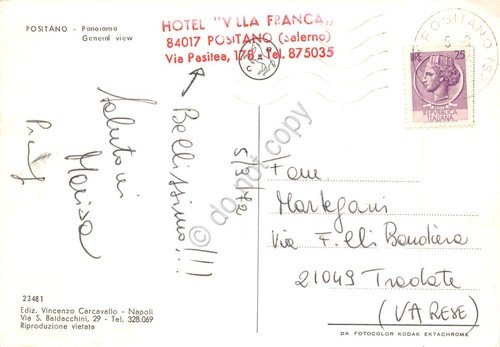 POSITANO - Panorama
General view
HOTEL "VILLA FRANCA"
84017 POSITANO (Salerno)
Via Pasitea, 178 - Tel. 875035
POSITANO (SA)
25
REPVBBLICA
ITALIANA
Bellissimo!!!
Saluti
Marisa
5/9/72
Fam
Martegani
Via F.lli Bandiera
21049 Tradate
(VARESE)
do not copy
23481
Ediz. Vincenzo Carcavallo - Napoli
Via S. Baldacchini, 29 - Tel. 328.069
Riproduzione vietata
DA FOTOCOLOR KODAK EKTACHROME